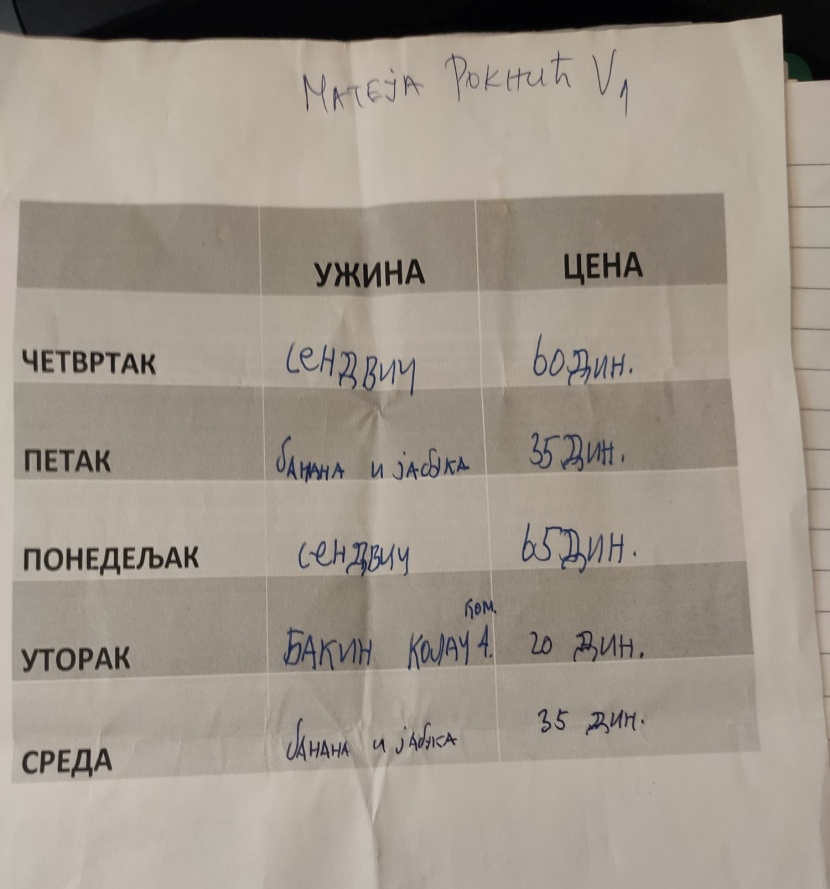 Матеја Рокнић V1
УЖИНА ЦЕНА
ЧЕТВРТАК сендвич 60 дин.
ПЕТАК банана и јабука 35 дин.
ПОНЕДЕЉАК сендвич 65 дин.
ком.
УТОРАК БАКИН КОЛАЧ 1. 20 дин.
СРЕДА банана и јабука 35 дин.